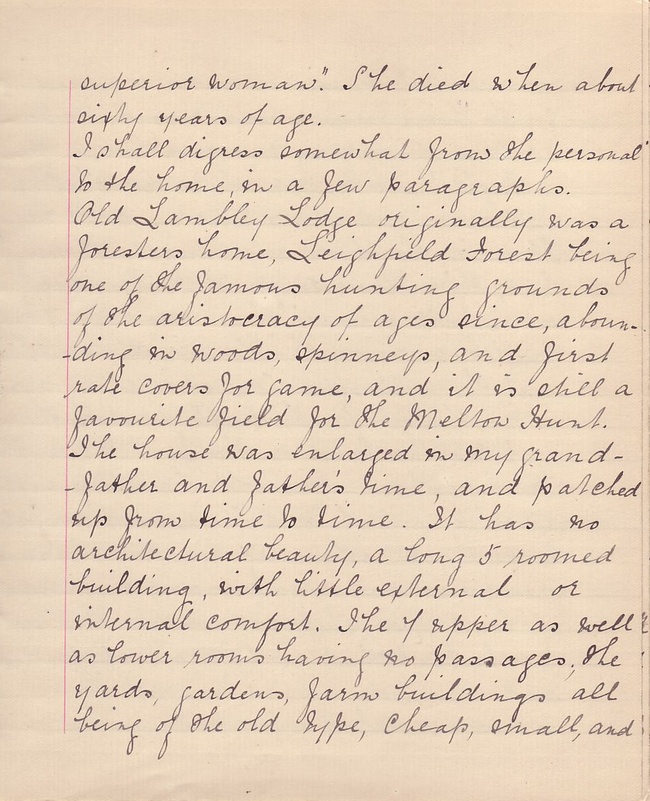 superior woman". She died when about
sixty years of age.
I shall digress somewhat from the personal
to the home, in a few paragraphs.
Old Lambley Lodge originally was a
foresters home, Leighfield Forest being
one of the famous hunting grounds
of the aristocracy of ages since, aboun-
-ding in woods, spinneys, and first
rate covers for game, and it is still a
favourite field for the Melton Hunt.
The house was enlarged in my grand-
-father and father's time, and patched
up from time to time. It has no
architectural beauty, a long 5 roomed
building, with little external or
internal comfort. The 4 upper as well
as lower rooms having no passages, the
yards, gardens, farm buildings all
being of the old type, cheap, small, and